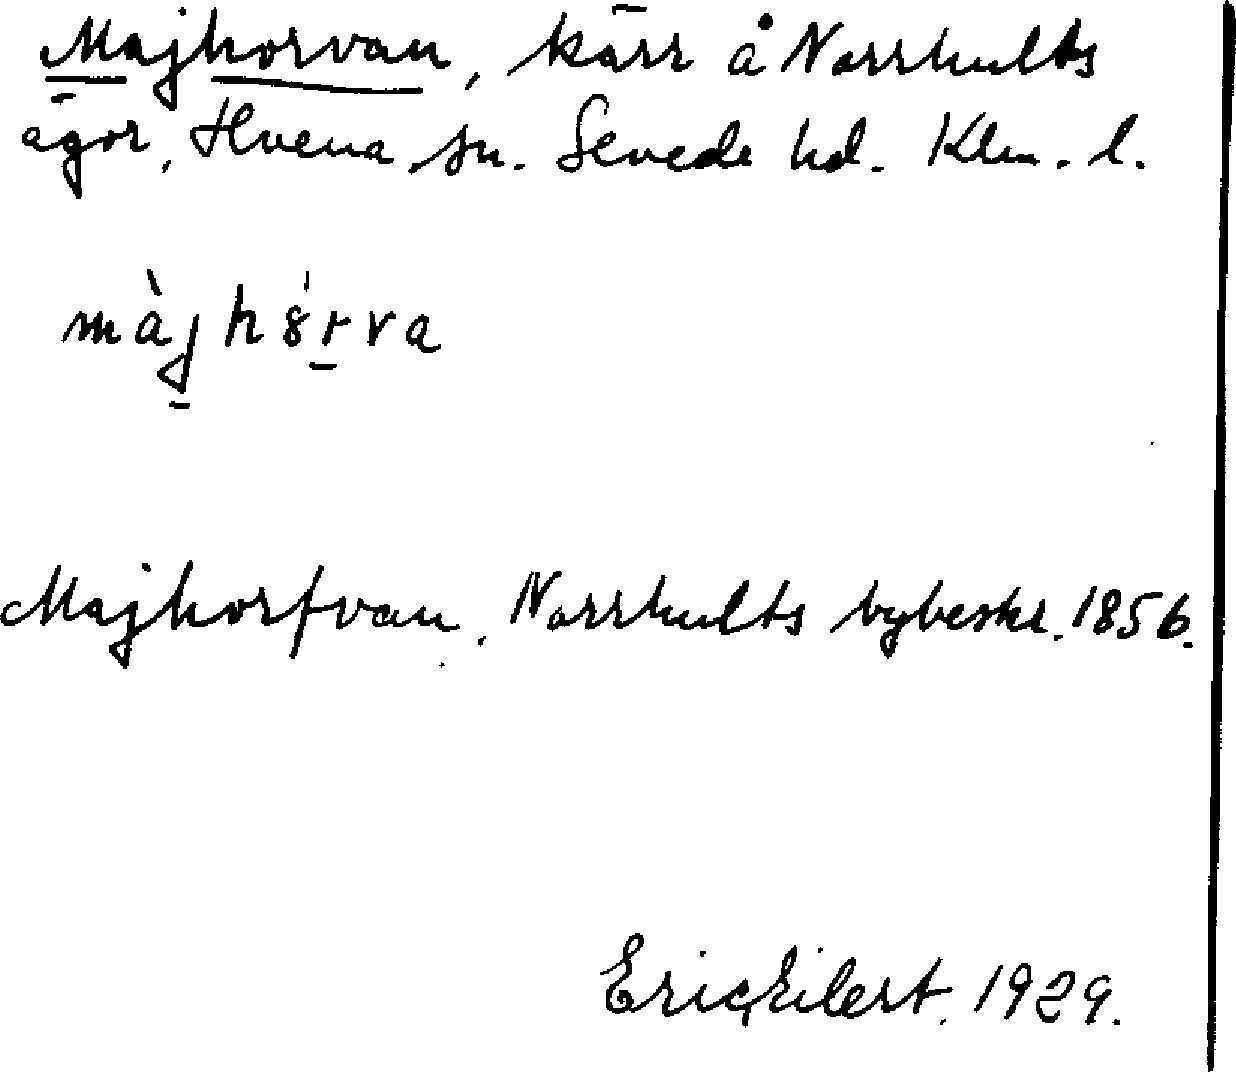 Majhorvan, kärr å Norrhults
ägor, Hvena sn. Sevede hd. Klm. l.
màjhórva
Majhorfvan. Norrhults bybeskr. 1856.
Eric Eilert. 1929.